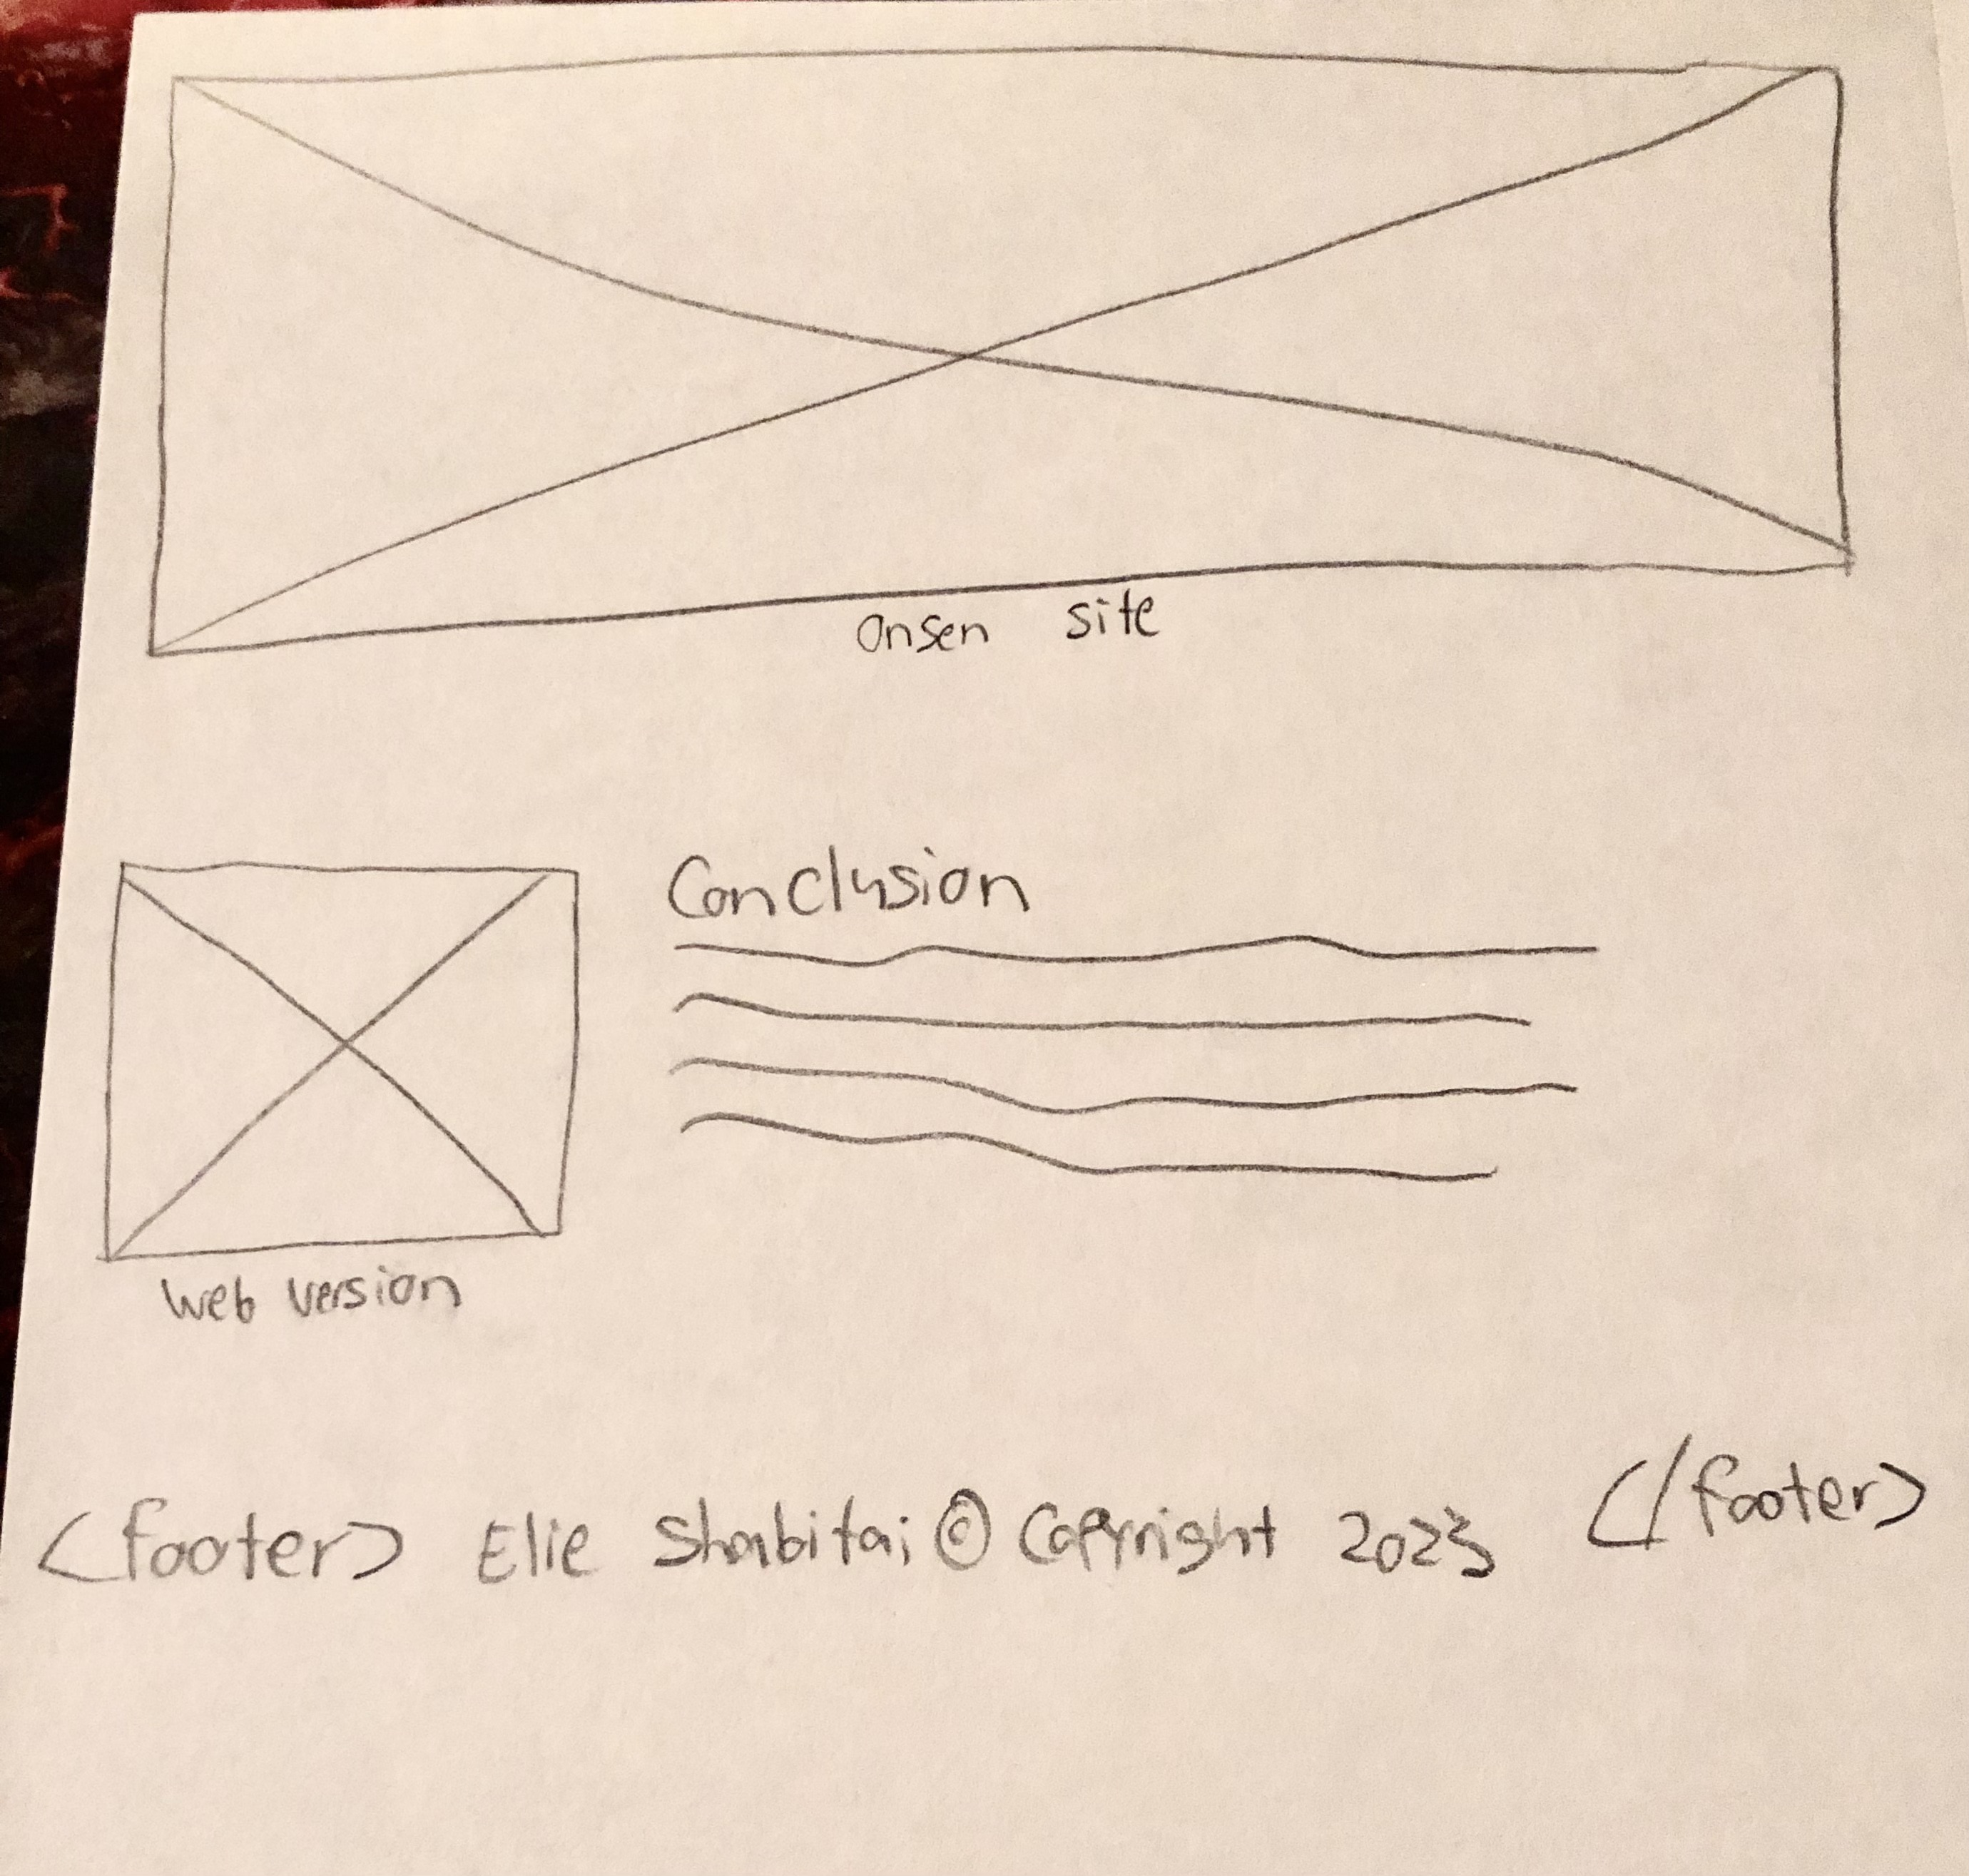 Onsen site
Conclusion
Web version
<footer> Elie Shabitai © Copyright 2023 </footer>